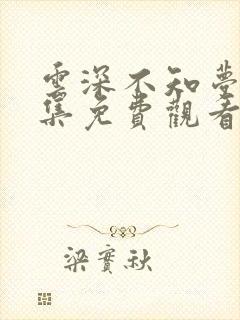 雲深不知夢
集免費觀看
梁實秋